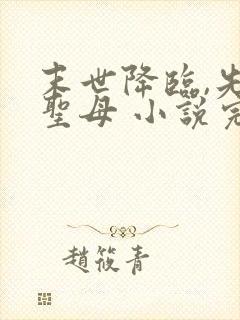 末世降臨,先
聖母 小說完
趙筱青